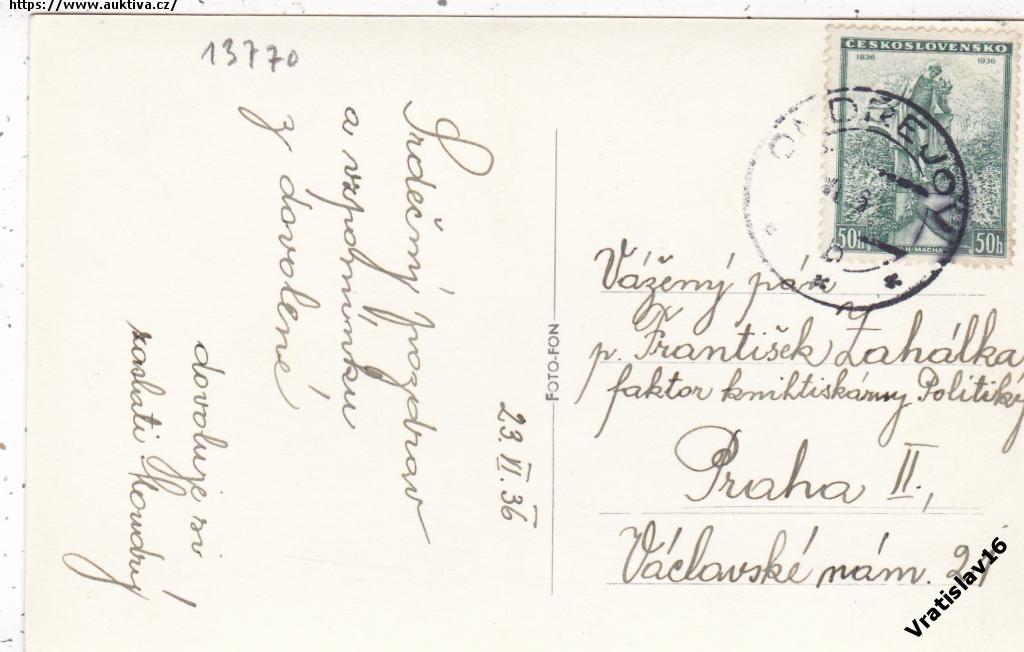 https://www.auktiva.cz/
13770
Srdečný pozdrav
a vzpomínku
z dovolené
dovoluje si
zaslati
23.VI.36
FOTO-FON
ČESKOSLOVENSKO
1836 1936
50h 50h
K.H. MÁCHA
ONDŘEJOV
Vážený pán
p. František Zahálka
faktor knihtiskárny Politiky
Praha II,
Václavské nám. 21
Vratislav16